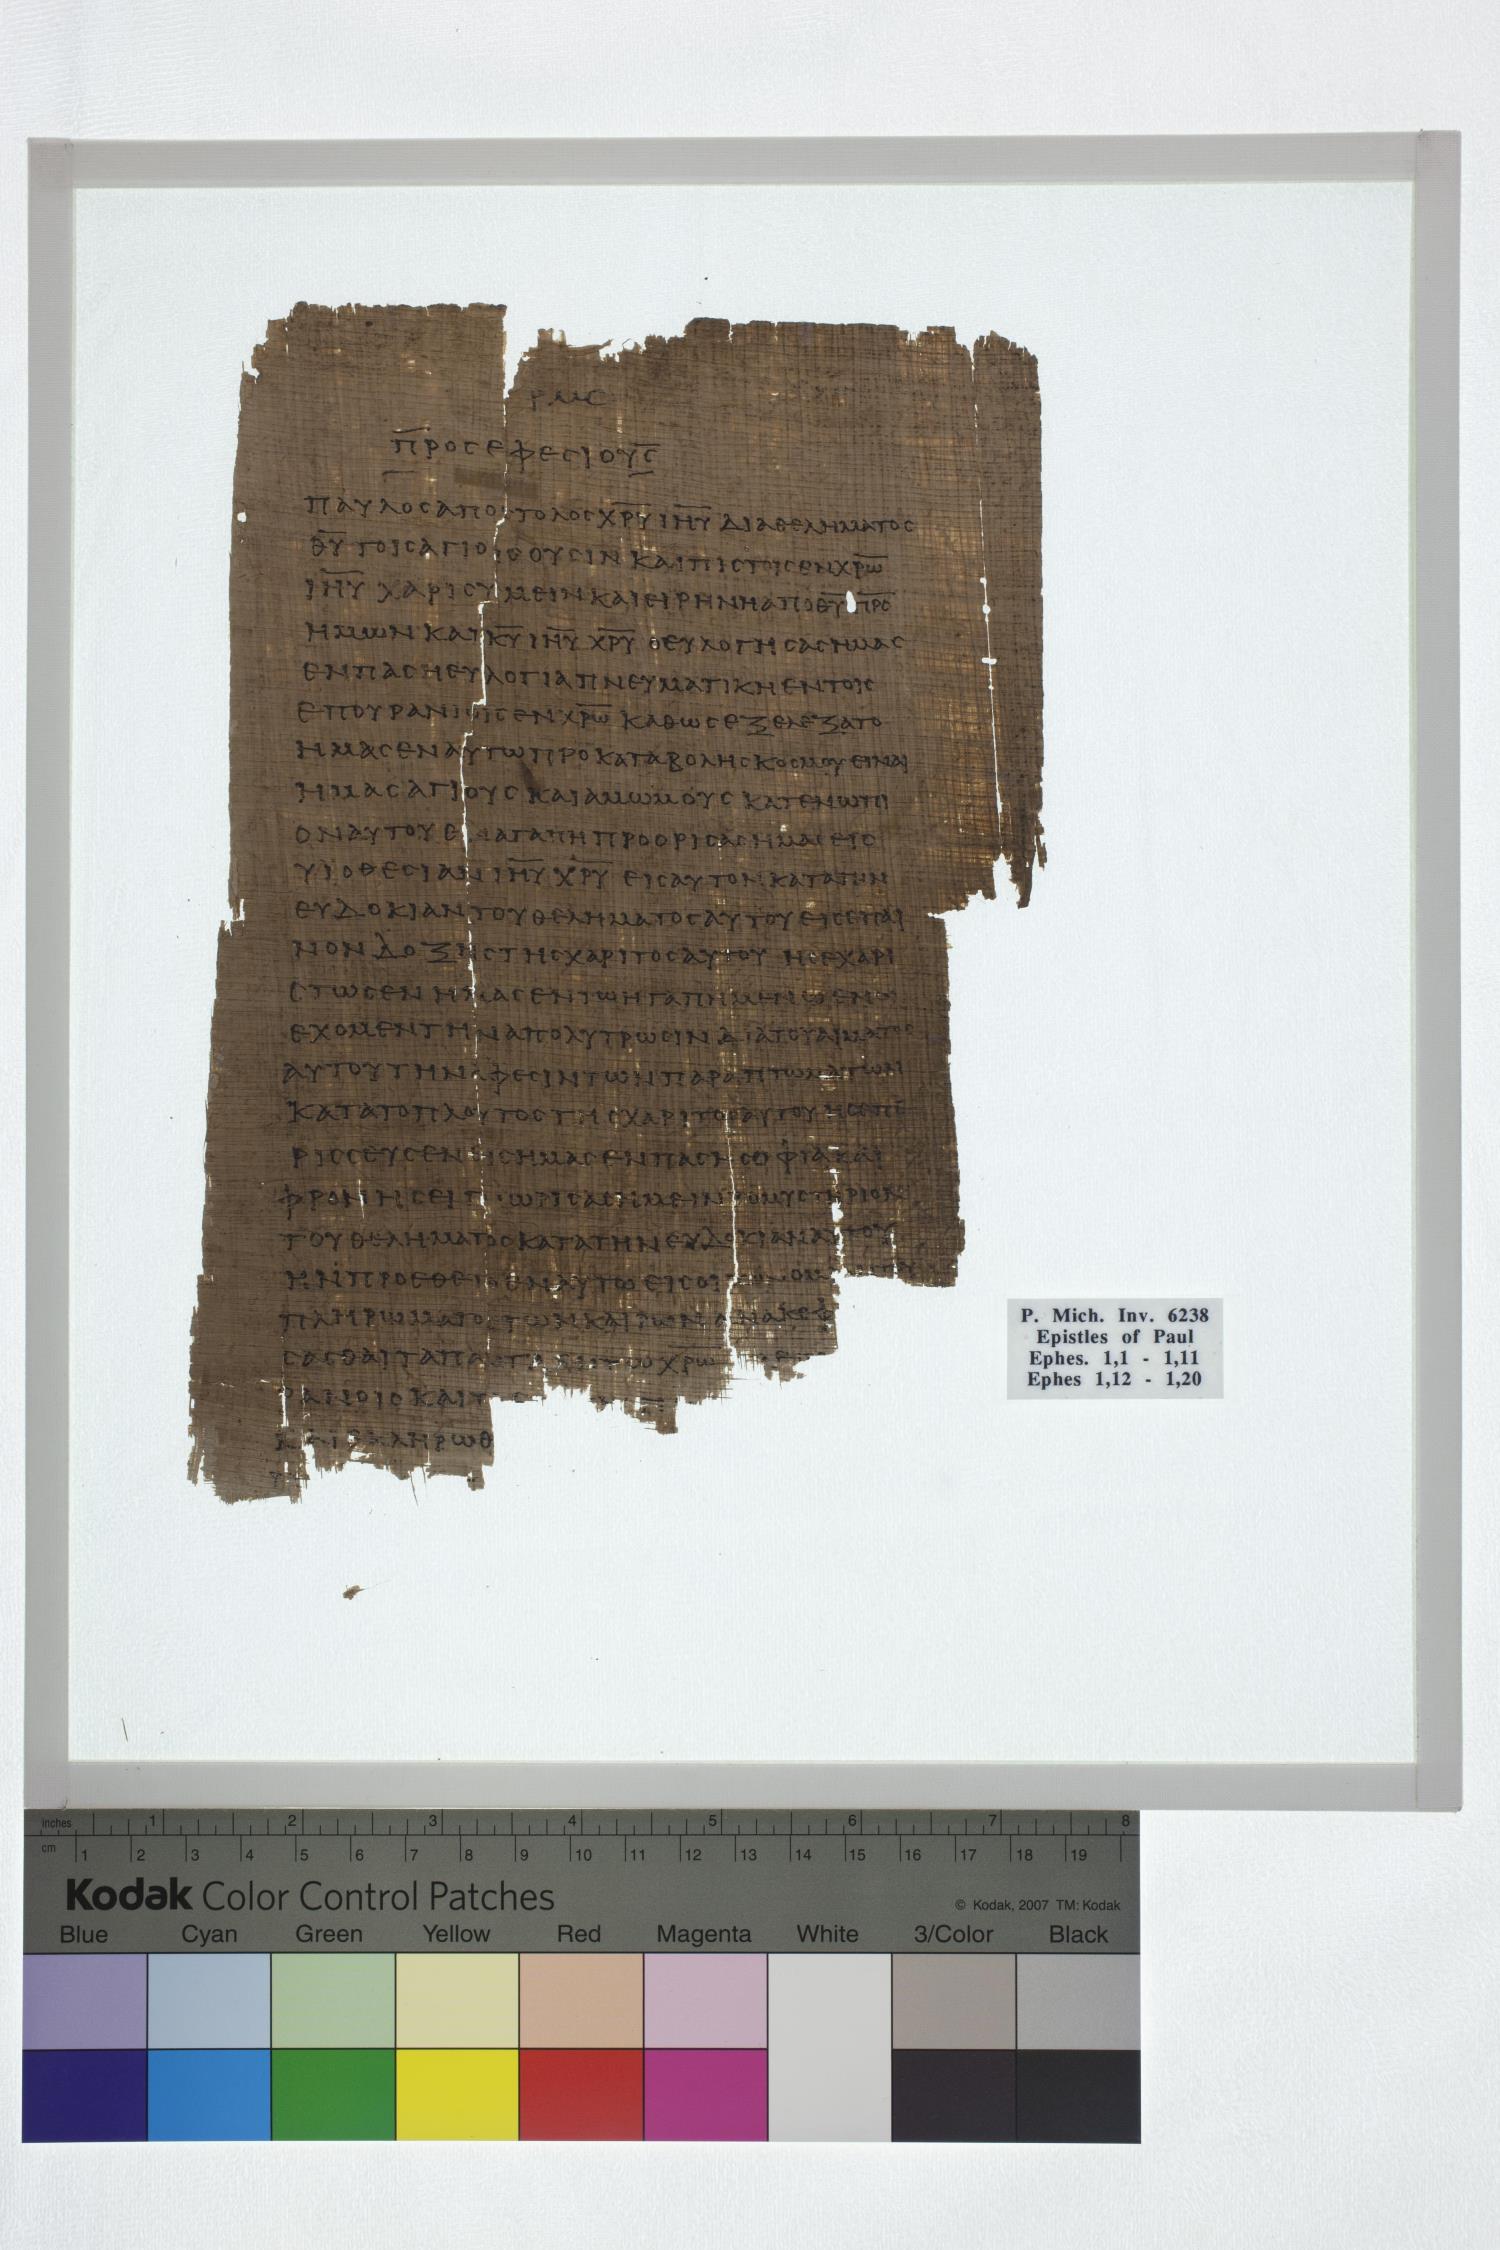 ΡΜϹ
ΠΡΟϹΕΦΕϹΙΟΥϹ
ΠΑΥΛΟϹΑΠΟϹΤΟΛΟϹΧΡΥ ΙΗΥ ΔΙΑΘΕΛΗΜΑΤΟϹ
ΘΥ ΤΟΙϹΑΓΙΟΙϹΟΥϹΙΝ ΚΑΙΠΙϹΤΟΙϹΕΝΧΡΩ
ΙΗΥ ΧΑΡΙϹΥΜΕΙΝΚΑΙΕΙΡΗΝΗΑΠΟΘΥ ΠΡϹ
ΗΜΩΝ ΚΑΙΚΥ ΙΗΥ ΧΡΥ ΟΕΥΛΟΓΗϹΑϹΗΜΑϹ
ΕΝΠΑϹΗΕΥΛΟΓΙΑΠΝΕΥΜΑΤΙΚΗΕΝΤΟΙϹ
ΕΠΟΥΡΑΝΙΟΙϹΕΝΧΡΩ ΚΑΘΩϹΕΞΕΛΕΞΑΤΟ
ΗΜΑϹΕΝΑΥΤΩΠΡΟΚΑΤΑΒΟΛΗϹΚΟϹΜΟΥΕΙΝΑΙ
ΗΜΑϹΑΓΙΟΥϹ ΚΑΙΑΜΩΜΟΥϹ ΚΑΤΕΝΩΠΙ
ΟΝΑΥΤΟΥΕΝΑΓΑΠΗΠΡΟΟΡΙϹΑϹΗΜΑϹΕΙϹ
ΥΙΟΘΕϹΙΑΝΙΗΥ ΧΡΥ ΕΙϹΑΥΤΟΝΚΑΤΑΤΗΝ
ΕΥΔΟΚΙΑΝΤΟΥΘΕΛΗΜΑΤΟϹΑΥΤΟΥΕΙϹΕΠΑΙ
ΝΟΝΔΟΞΗϹΤΗϹΧΑΡΙΤΟϹΑΥΤΟΥ ΗϹΕΧΑΡΙ
ϹΤΩϹΕΝΗΜΑϹΕΝΤΩΗΓΑΠΗΜΕΝΩΕΝΩ
ΕΧΟΜΕΝΤΗΝΑΠΟΛΥΤΡΩϹΙΝΔΙΑΤΟΥΑΙΜΑΤΟϹ
ΑΥΤΟΥΤΗΝΑΦΕϹΙΝΤΩΝΠΑΡΑΠΤΩΜΑΤΩΝ
ΚΑΤΑΤΟΠΛΟΥΤΟϹΤΗϹΧΑΡΙΤΟϹΑΥΤΟΥΗϹΕΠΕ
ΡΙϹϹΕΥϹΕΝΕΙϹΗΜΑϹΕΝΠΑϹΗϹΟΦΙΑΚΑΙ
ΦΡΟΝΗϹΕΙΓΝΩΡΙϹΑϹΗΜΕΙΝΤΟΜΥϹΤΗΡΙΟΝ
ΤΟΥΘΕΛΗΜΑΤΟϹΚΑΤΑΤΗΝΕΥΔΟΚΙΑΝΑΥΤΟΥ
ΗΝΠΡΟΕΘΕΤΟΕΝΑΥΤΩΕΙϹΟΙ
ΠΛΗΡΩΜΑΤΟϹΤΩΝΚΑΙΡΩΝΑΝΑΚΕΦ
ϹΑϹΘΑΙΤΑΠΑΝΤΑΕΝΤΩΧΡΩ
ΡΑΝΟΙϹΚΑΙΤ
ΚΑΙΕΚΛΗΡΩΘ
P. Mich. Inv. 6238
Epistles of Paul
Ephes. 1,1 - 1,11
Ephes 1,12 - 1,20
inches 1 2 3 4 5 6 7 8
cm 1 2 3 4 5 6 7 8 9 10 11 12 13 14 15 16 17 18 19
Kodak Color Control Patches © Kodak, 2007 TM: Kodak
Blue Cyan Green Yellow Red Magenta White 3/Color Black